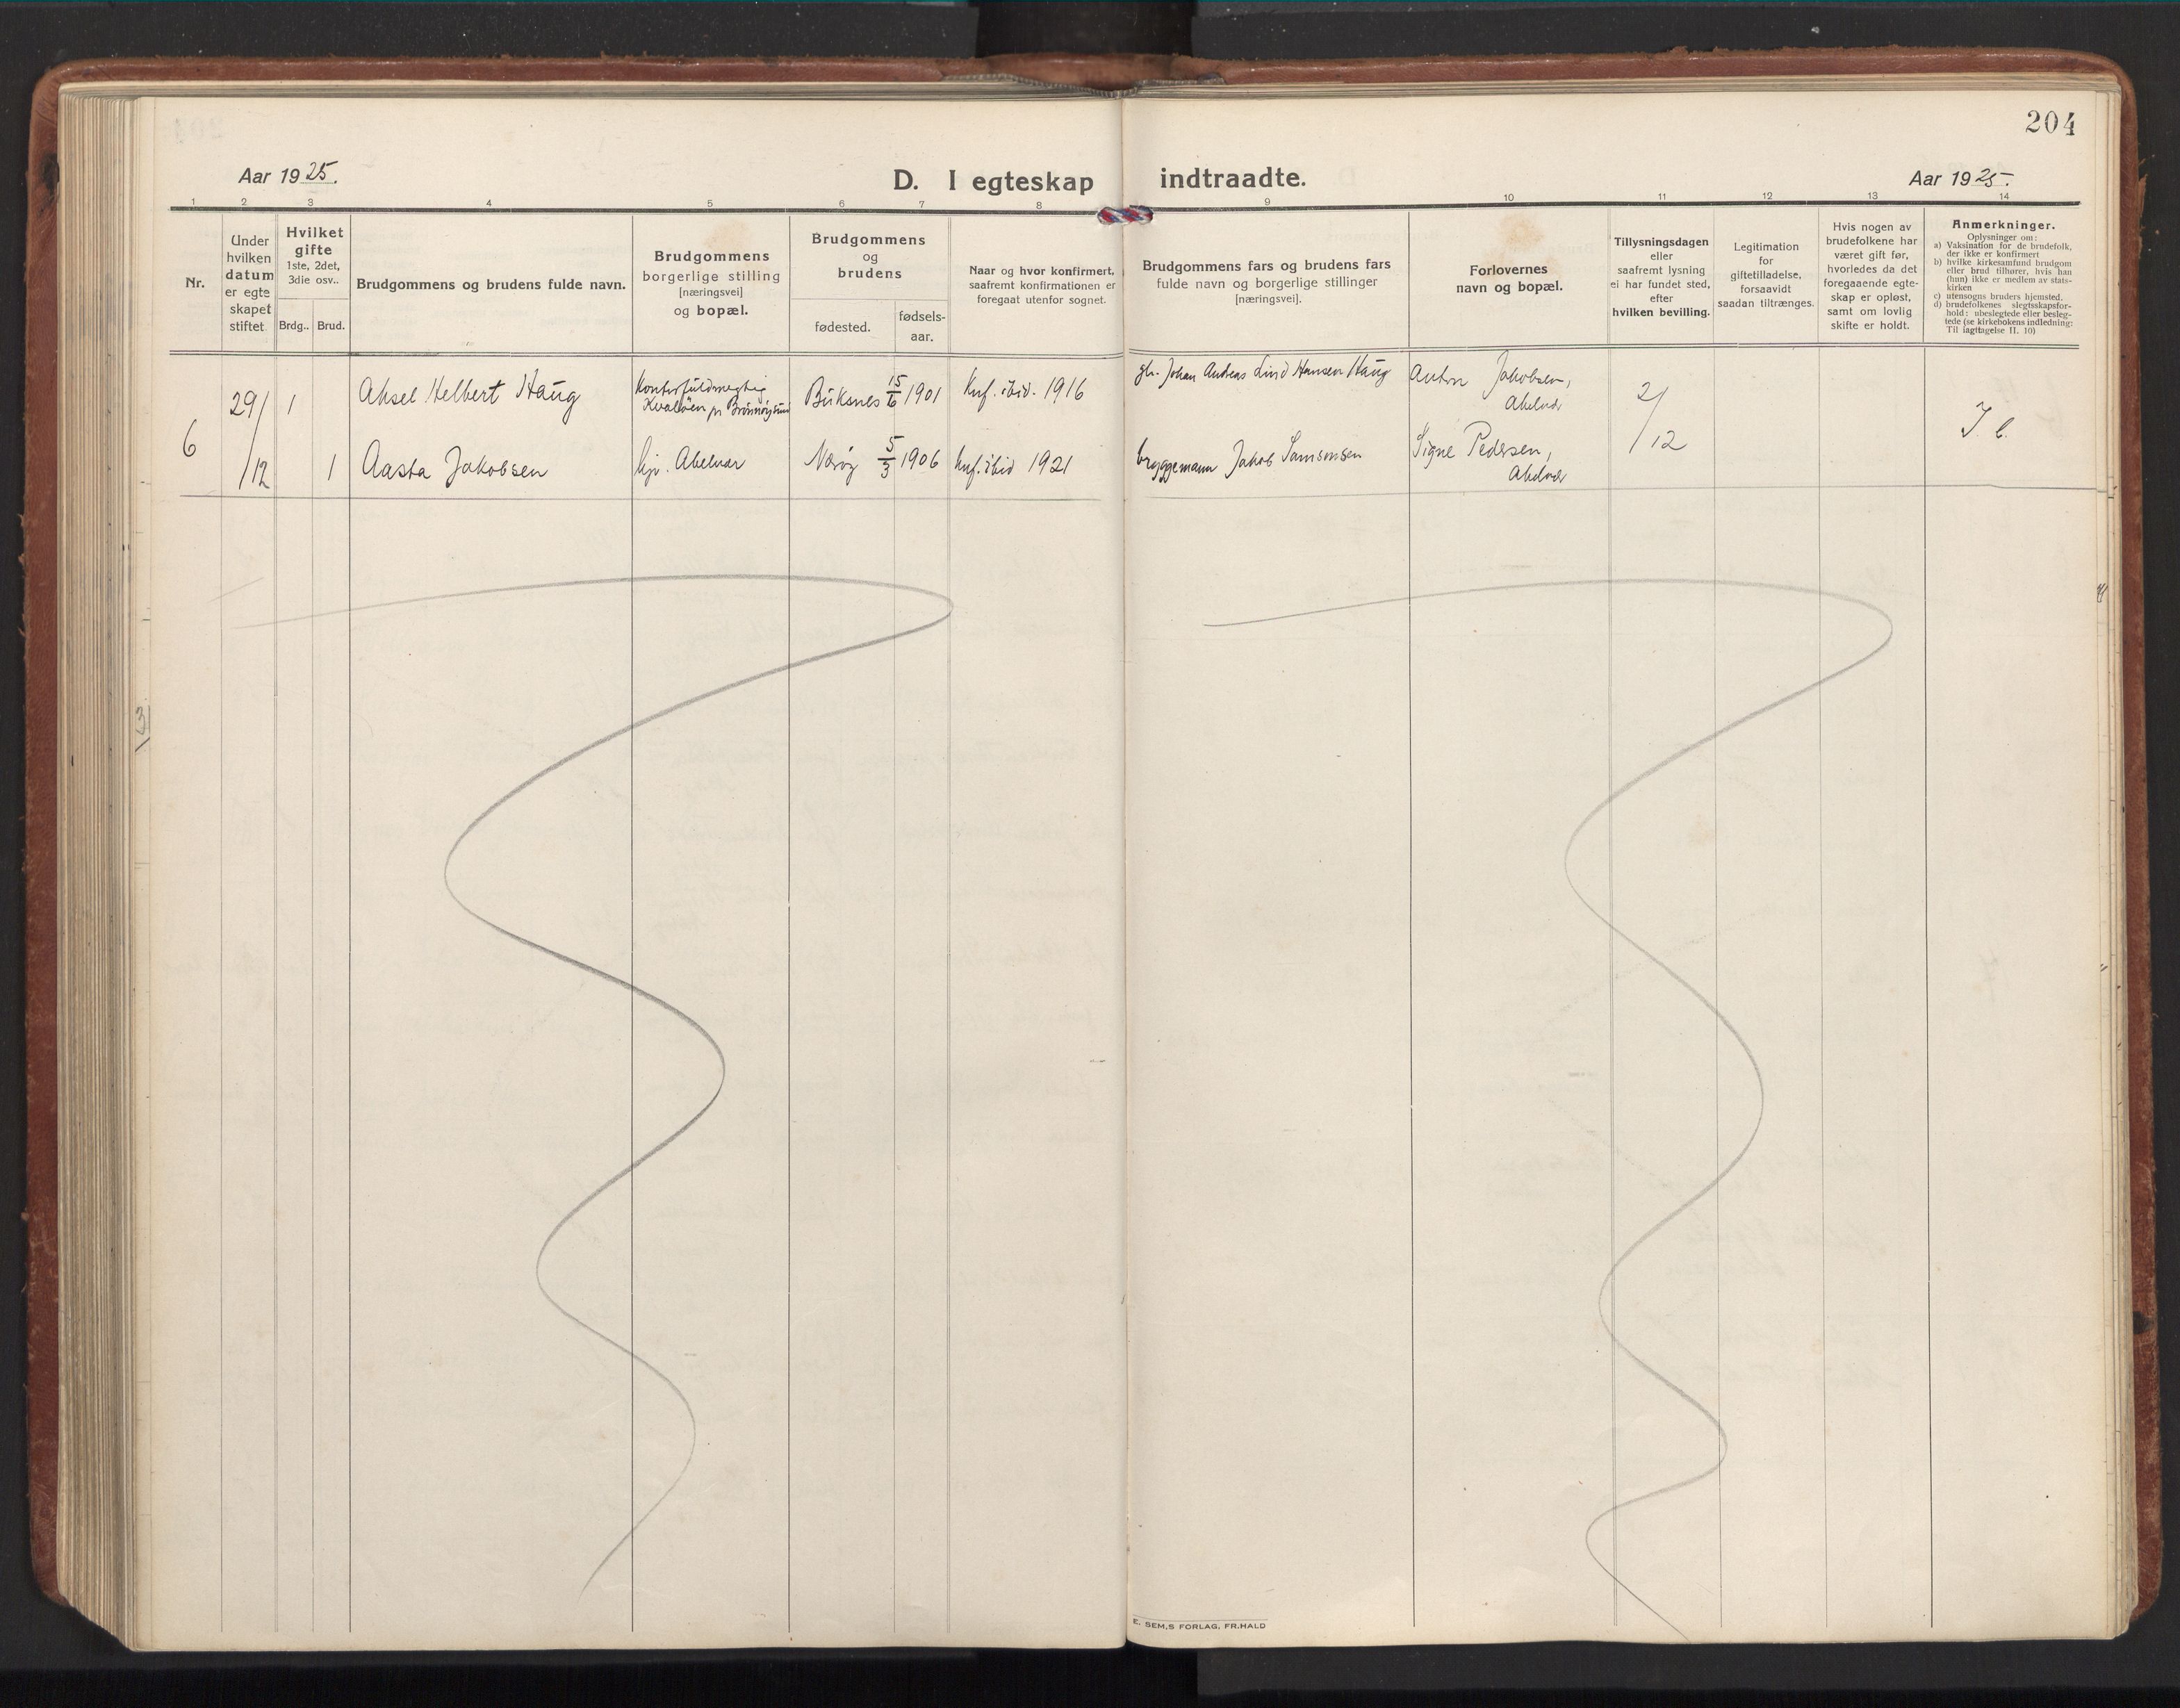 204
Aar 1925.
D. I egteskap indtraadte.
Aar 1925.
1 2 3 4 5 6 7 8 9 10 11 12 13 14
Nr.
Under
hvilken
datum
er egte
skapet
stiftet.
Hvilket
gifte
1ste, 2det,
3die osv..
Brdg.. Brud.
Brudgommens og brudens fulde navn.
Brudgommens
borgerlige stilling
[næringsvei]
og bopæl.
Brudgommens
og
brudens
fødested.
fødsels-
aar.
Naar og hvor konfirmert,
saafremt konfirmationen er
foregaat utenfor sognet.
Brudgommens fars og brudens fars
fulde navn og borgerlige stillinger
[næringsvei].
Forlovernes
navn og bopæl.
Tillysningsdagen
eller
saafremt lysning
ei har fundet sted,
efter
hvilken bevilling.
Legitimation
for
giftetilladelse,
forsaavidt
saadan tiltrænges.
Hvis nogen av
brudefolkene har
været gift før,
hvorledes da det
foregaaende egte-
skap er opløst,
samt om lovlig
skifte er holdt.
Anmerkninger.
Oplysninger om:
a) Vaksination for de brudefolk,
der ikke er konfirmert
b) hvilke kirkesamfund brudgom
eller brud tilhører, hvis han
(hun) ikke er medlem av stats-
kirken
c) utensogns bruders hjemsted.
d) brudefolkenes slegtsskapsfor-
hold: ubeslegtede eller besleg-
tede (se kirkebokens indledning:
Til iagttagelse II, 10)
6
29/12
1
Aksel Helbert Haug
Kontorfuldmegtig
Kvaløen pr Brønnøysund
Buksnes
15/6 1901
Knf. ibid. 1916
gbr. Johan Andreas Lind Hansen Haug
Anton Jakobsen,
Abelvær
2/12
I b.
1
Aasta Jakobsen
Abelvær
Nærøy
5/3 1906
Knf. ibid 1921
bryggemann Jakob Samsonsen
Signe Pedersen,
Abelvær
3
E. SEM,S FORLAG, FR.HALD